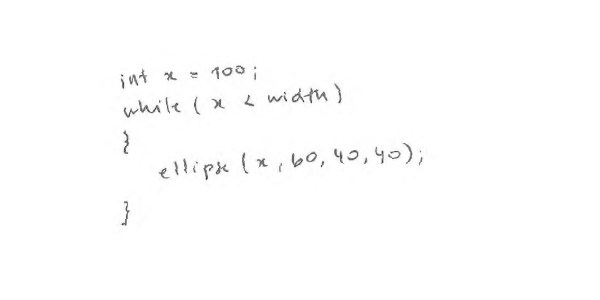 int x = 100;
while ( x < width)
}
ellipse (x, 60, 40, 40);
}